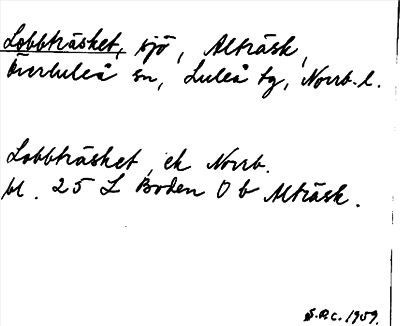 Lobbträsket, sjö, Alträsk,
Överluleå sn, Luleå tg, Norrb. l.
Lobbträsket ek Norrb.
bl. 25 L Boden O b Alträsk.
S.Q.C. 1959.